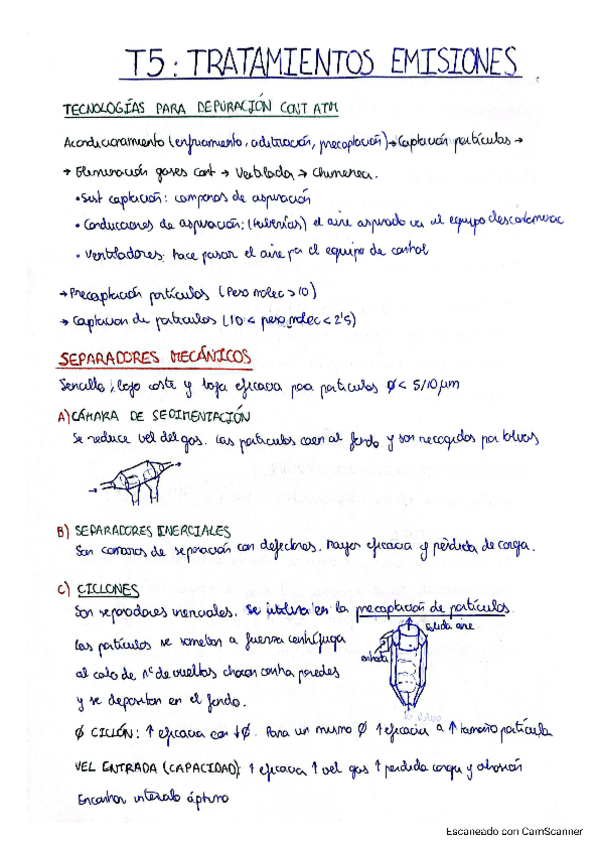 T5: TRATAMIENTOS EMISIONES
TECNOLOGÍAS PARA DEPURACIÓN CONT ATM
Acondicionamiento (enfriamiento, , precaptación) → Captación partículas →
→ Eliminación gases cont → Ventilador → Chimenea.
• Sist captación: campanas de aspiración
• Conducciones de aspiración: (tuberías) el aire aspirado va al equipo
• Ventiladores: hace pasar el aire por el equipo de control
→ Precaptación partículas (Peso molec > 10)
→ Captación de partículas (10 < peso molec < 2'5)
SEPARADORES MECÁNICOS
Sencillo, bajo coste y baja eficacia para partículas ø < 5/10 µm
A) CÁMARA DE SEDIMENTACIÓN
Se reduce vel del gas. Las partículas caen al fondo y son recogidas por tolvas
B) SEPARADORES INERCIALES
Son cámaras de separación con deflectores. Mayor eficacia y pérdida de carga.
C) CICLONES
Son separadores inerciales. Se utiliza en la precaptación de partículas
Las partículas se someten a fuerza centrífuga
al cabo de nº de vueltas chocan contra paredes
y se depositan en el fondo.
salida aire
entrada
ø CICLÓN: ↑ eficacia con ↓ø. Para un mismo ø ↑ eficacia a ↑ tamaño partícula
VEL ENTRADA (CAPACIDAD): ↑ eficacia ↑ vel gas ↑ perdida carga y abrasión
Encontrar intervalo óptimo
Escaneado con CamScanner